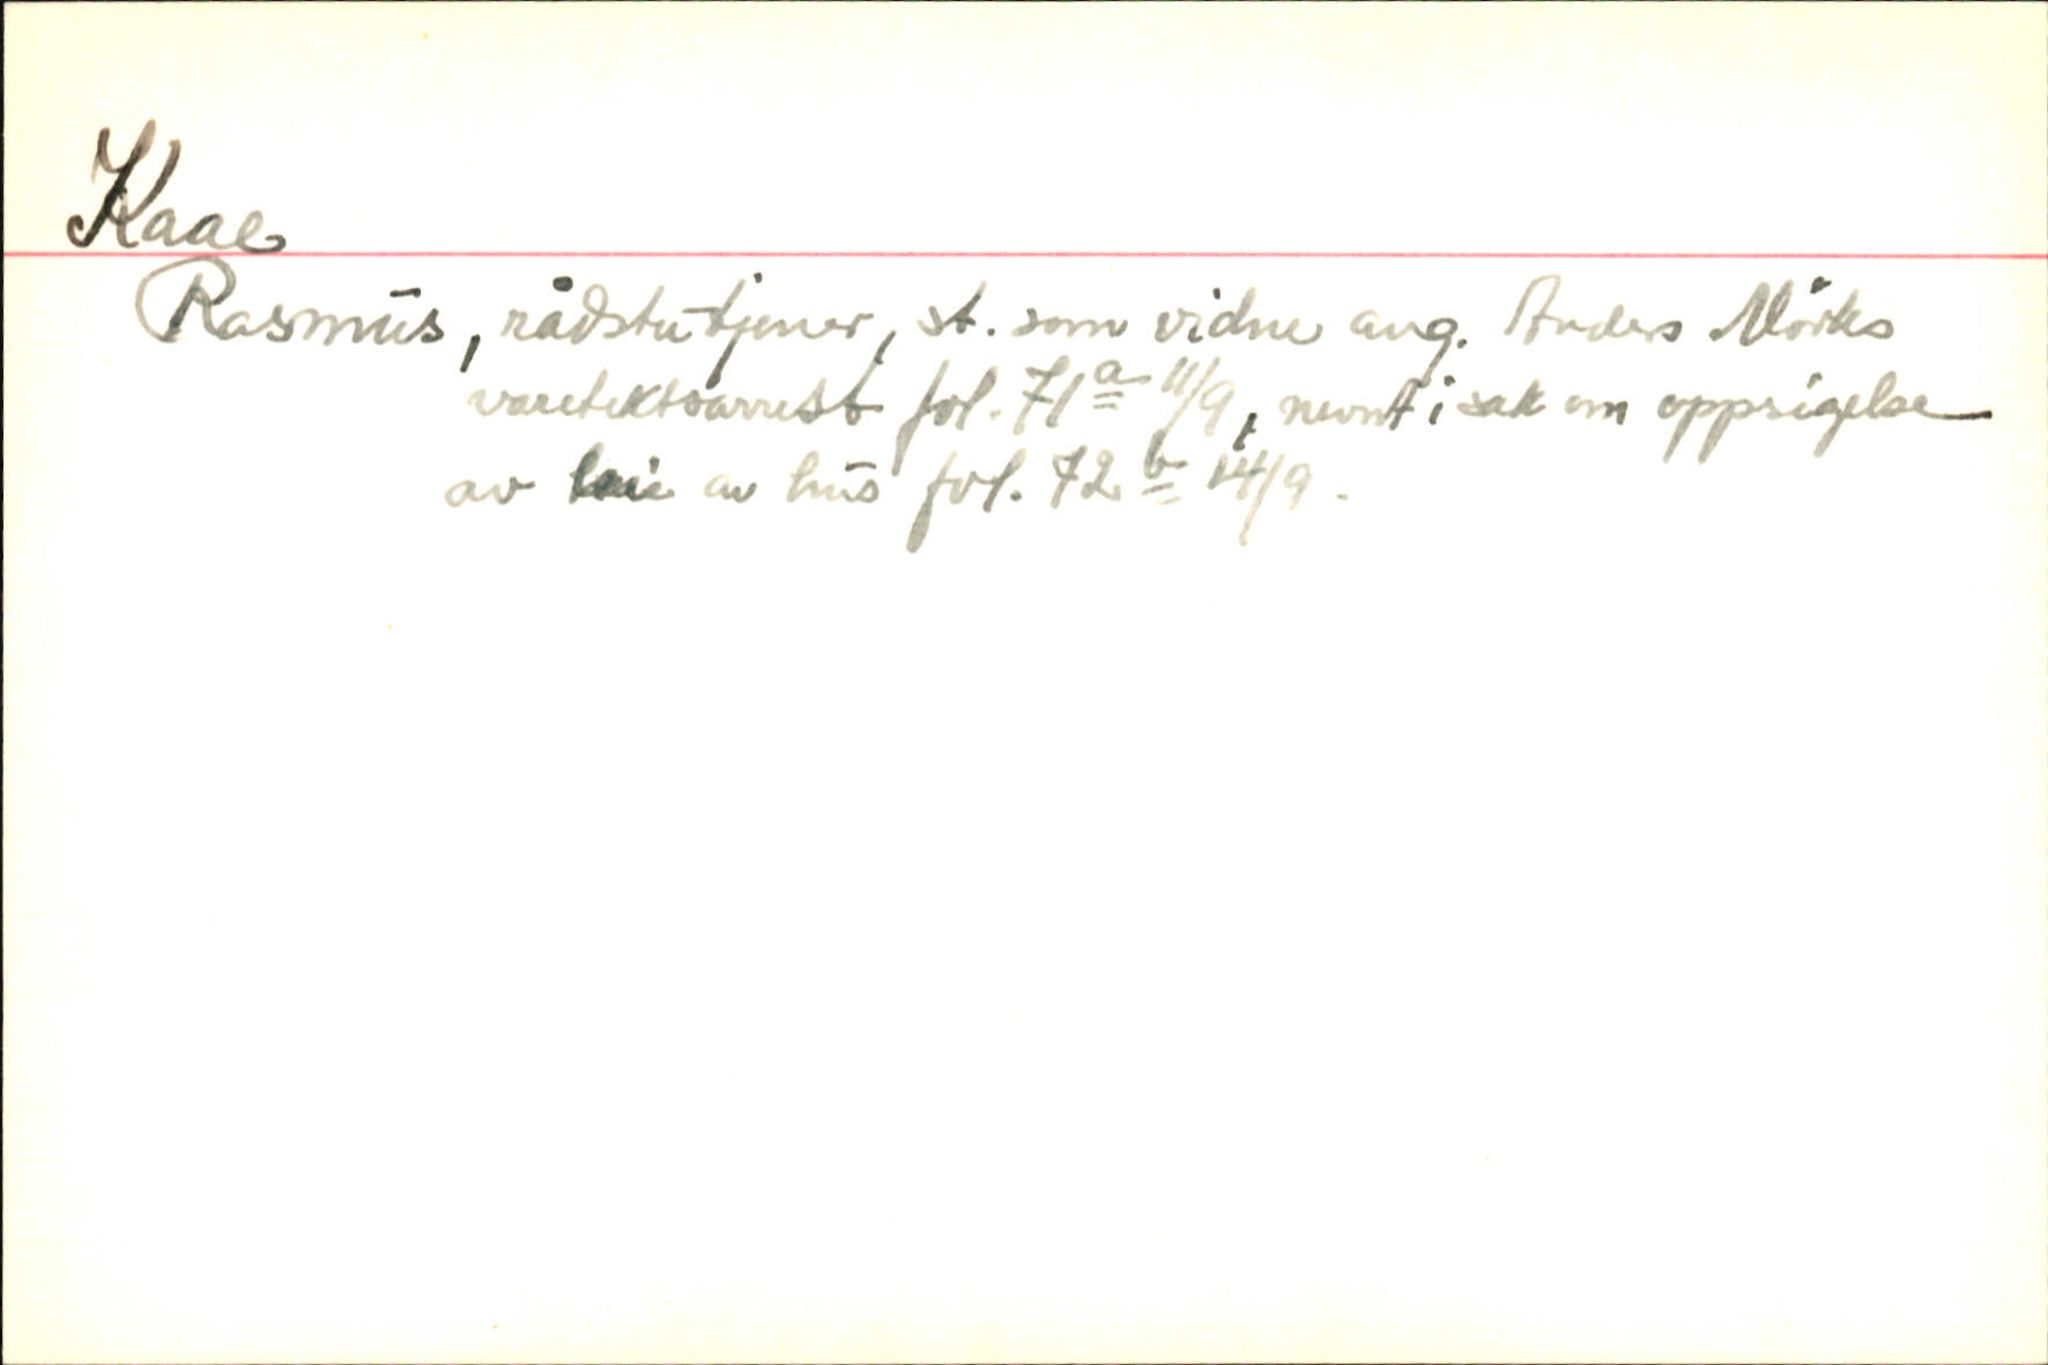 Kaae
Rasmus, rådstutjener, st. som vidne ang. Anders Mörks
varetektsarrest fol. 71 a 11/9, nevnt i sak om oppsigelse
av leie av hus fol. 72 b 14/9.